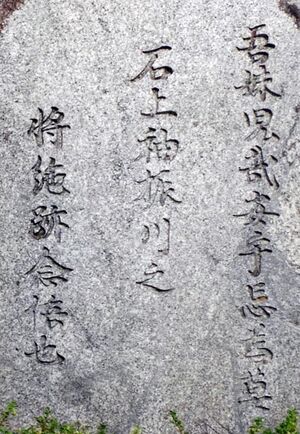 吾妹児哉安乎忘為莫
石上袖振川之
将絶跡念倍也